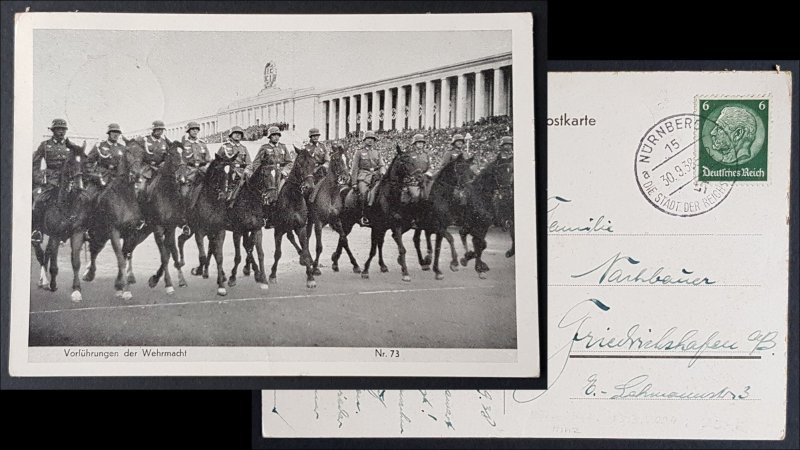 Vorführungen der Wehrmacht
Nr. 73
Postkarte
NÜRNBERG
15
30.9.38
DIE STADT DER REICHS
6 6
Deutsches Reich
Familie
Nachbauer
Friedrichshafen a/B.
E.-Lehmannstr. 3